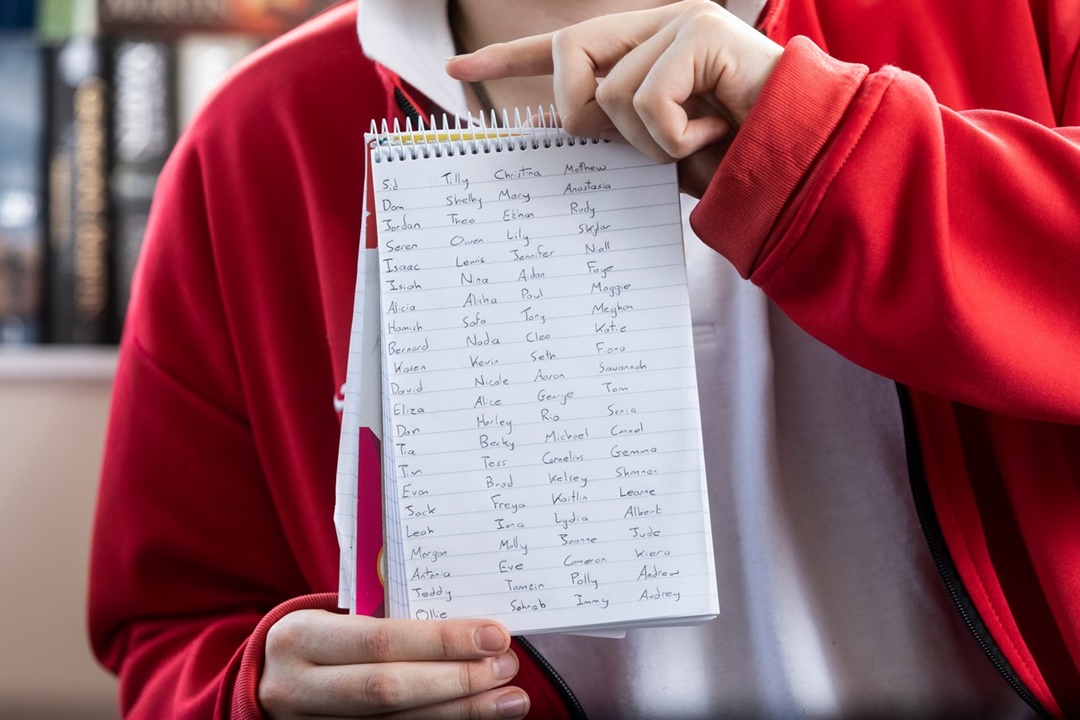 Sid Tilly Christina Mathew
Dom Shelby Macy Anastasia
Jordan Theo Ethan Rudy
Seren Owen Lily Skylar
Isaac Lewis Jennifer Niall
Isiah Nina Aidan Faye
Alicia Alisha Paul Maggie
Hamish Safa Tony Meghan
Bernard Nadia Cleo Katie
Karen Kevin Seth Fiona
David Nicole Aaron Savannah
Eliza Alice George Tom
Dan Harley Ria Sonia
Tia Becky Michael Connel
Tim Tess Cornelius Gemma
Evan Brad Kelsey Shannon
Jack Freya Kaitlin Leanne
Leah Iona Lydia Albert
Morgan Molly Joanne Jude
Antonia Eve Cameron Kiera
Teddy Tamzin Polly Andrew
Ollie Sohrab Immy Audrey